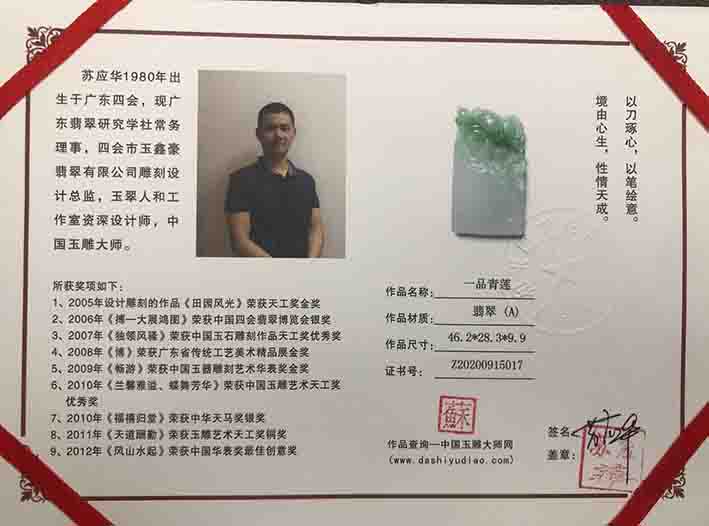 苏应华1980年出
生于广东四会，现广
东翡翠研究学社常务
理事，四会市玉鑫豪
翡翠有限公司雕刻设
计总监，玉翠人和工
作室资深设计师，中
国玉雕大师。
以刀琢心，以笔绘意。
境由心生，性情天成。
所获奖项如下：
1、2005年设计雕刻的作品《田园风光》荣获天工奖金奖
2、2006年《搏一大展鸿图》荣获中国四会翡翠博览会银奖
3、2007年《独领风骚》荣获中国玉石雕刻作品天工奖优秀奖
4、2008年《博》荣获广东省传统工艺美术精品展金奖
5、2009年《畅游》荣获中国玉器雕刻艺术华表奖金奖
6、2010年《兰馨雅溢、蝶舞芳华》荣获中国玉雕艺术天工奖
优秀奖
7、2010年《福禧归堂》荣获中华天马奖银奖
8、2011年《天道酬勤》荣获玉雕艺术天工奖铜奖
9、2012年《风山水起》荣获中国华表奖最佳创意奖
作品名称： 一品青莲
作品材质： 翡翠 (A)
作品尺寸： 46.2*28.3*9.9
证书号： Z20200915017
蘇
作品查询—中国玉雕大师网
(www.dashiyudiao.com)
签名： 苏应华
盖章：